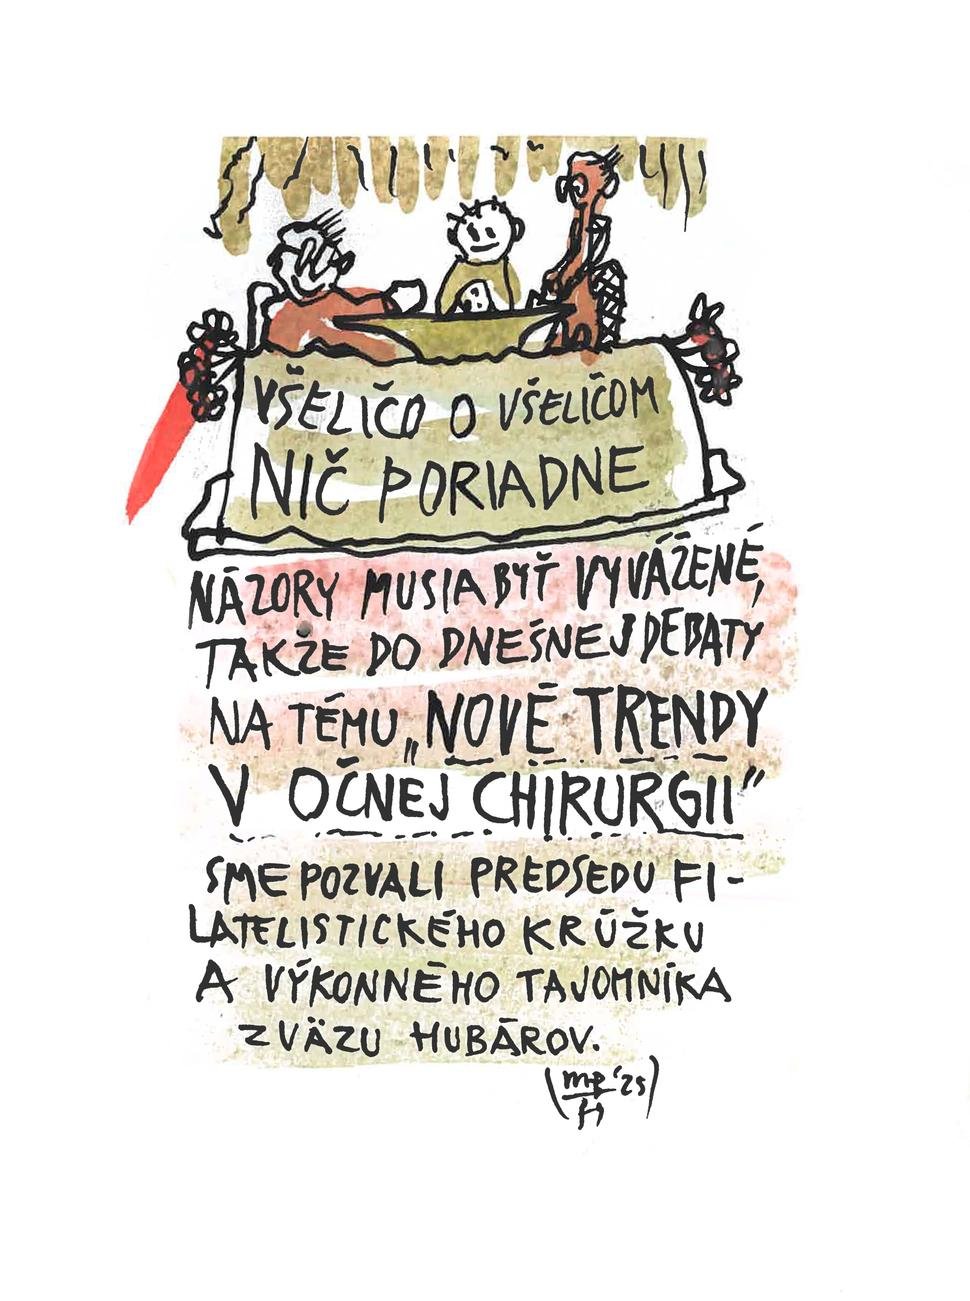 VŠELIČO O VŠELIČOM
NIČ PORIADNE
NÁZORY MUSIA BYŤ VYVÁŽENÉ,
TAKŽE DO DNEŠNEJ DEBATY
NA TÉMU „NOVÉ TRENDY
V OČNEJ CHIRURGII"
SME POZVALI PREDSEDU FI-
LATELISTICKÉHO KRÚŽKU
A VÝKONNÉHO TAJOMNÍKA
ZVÄZU HUBÁROV.